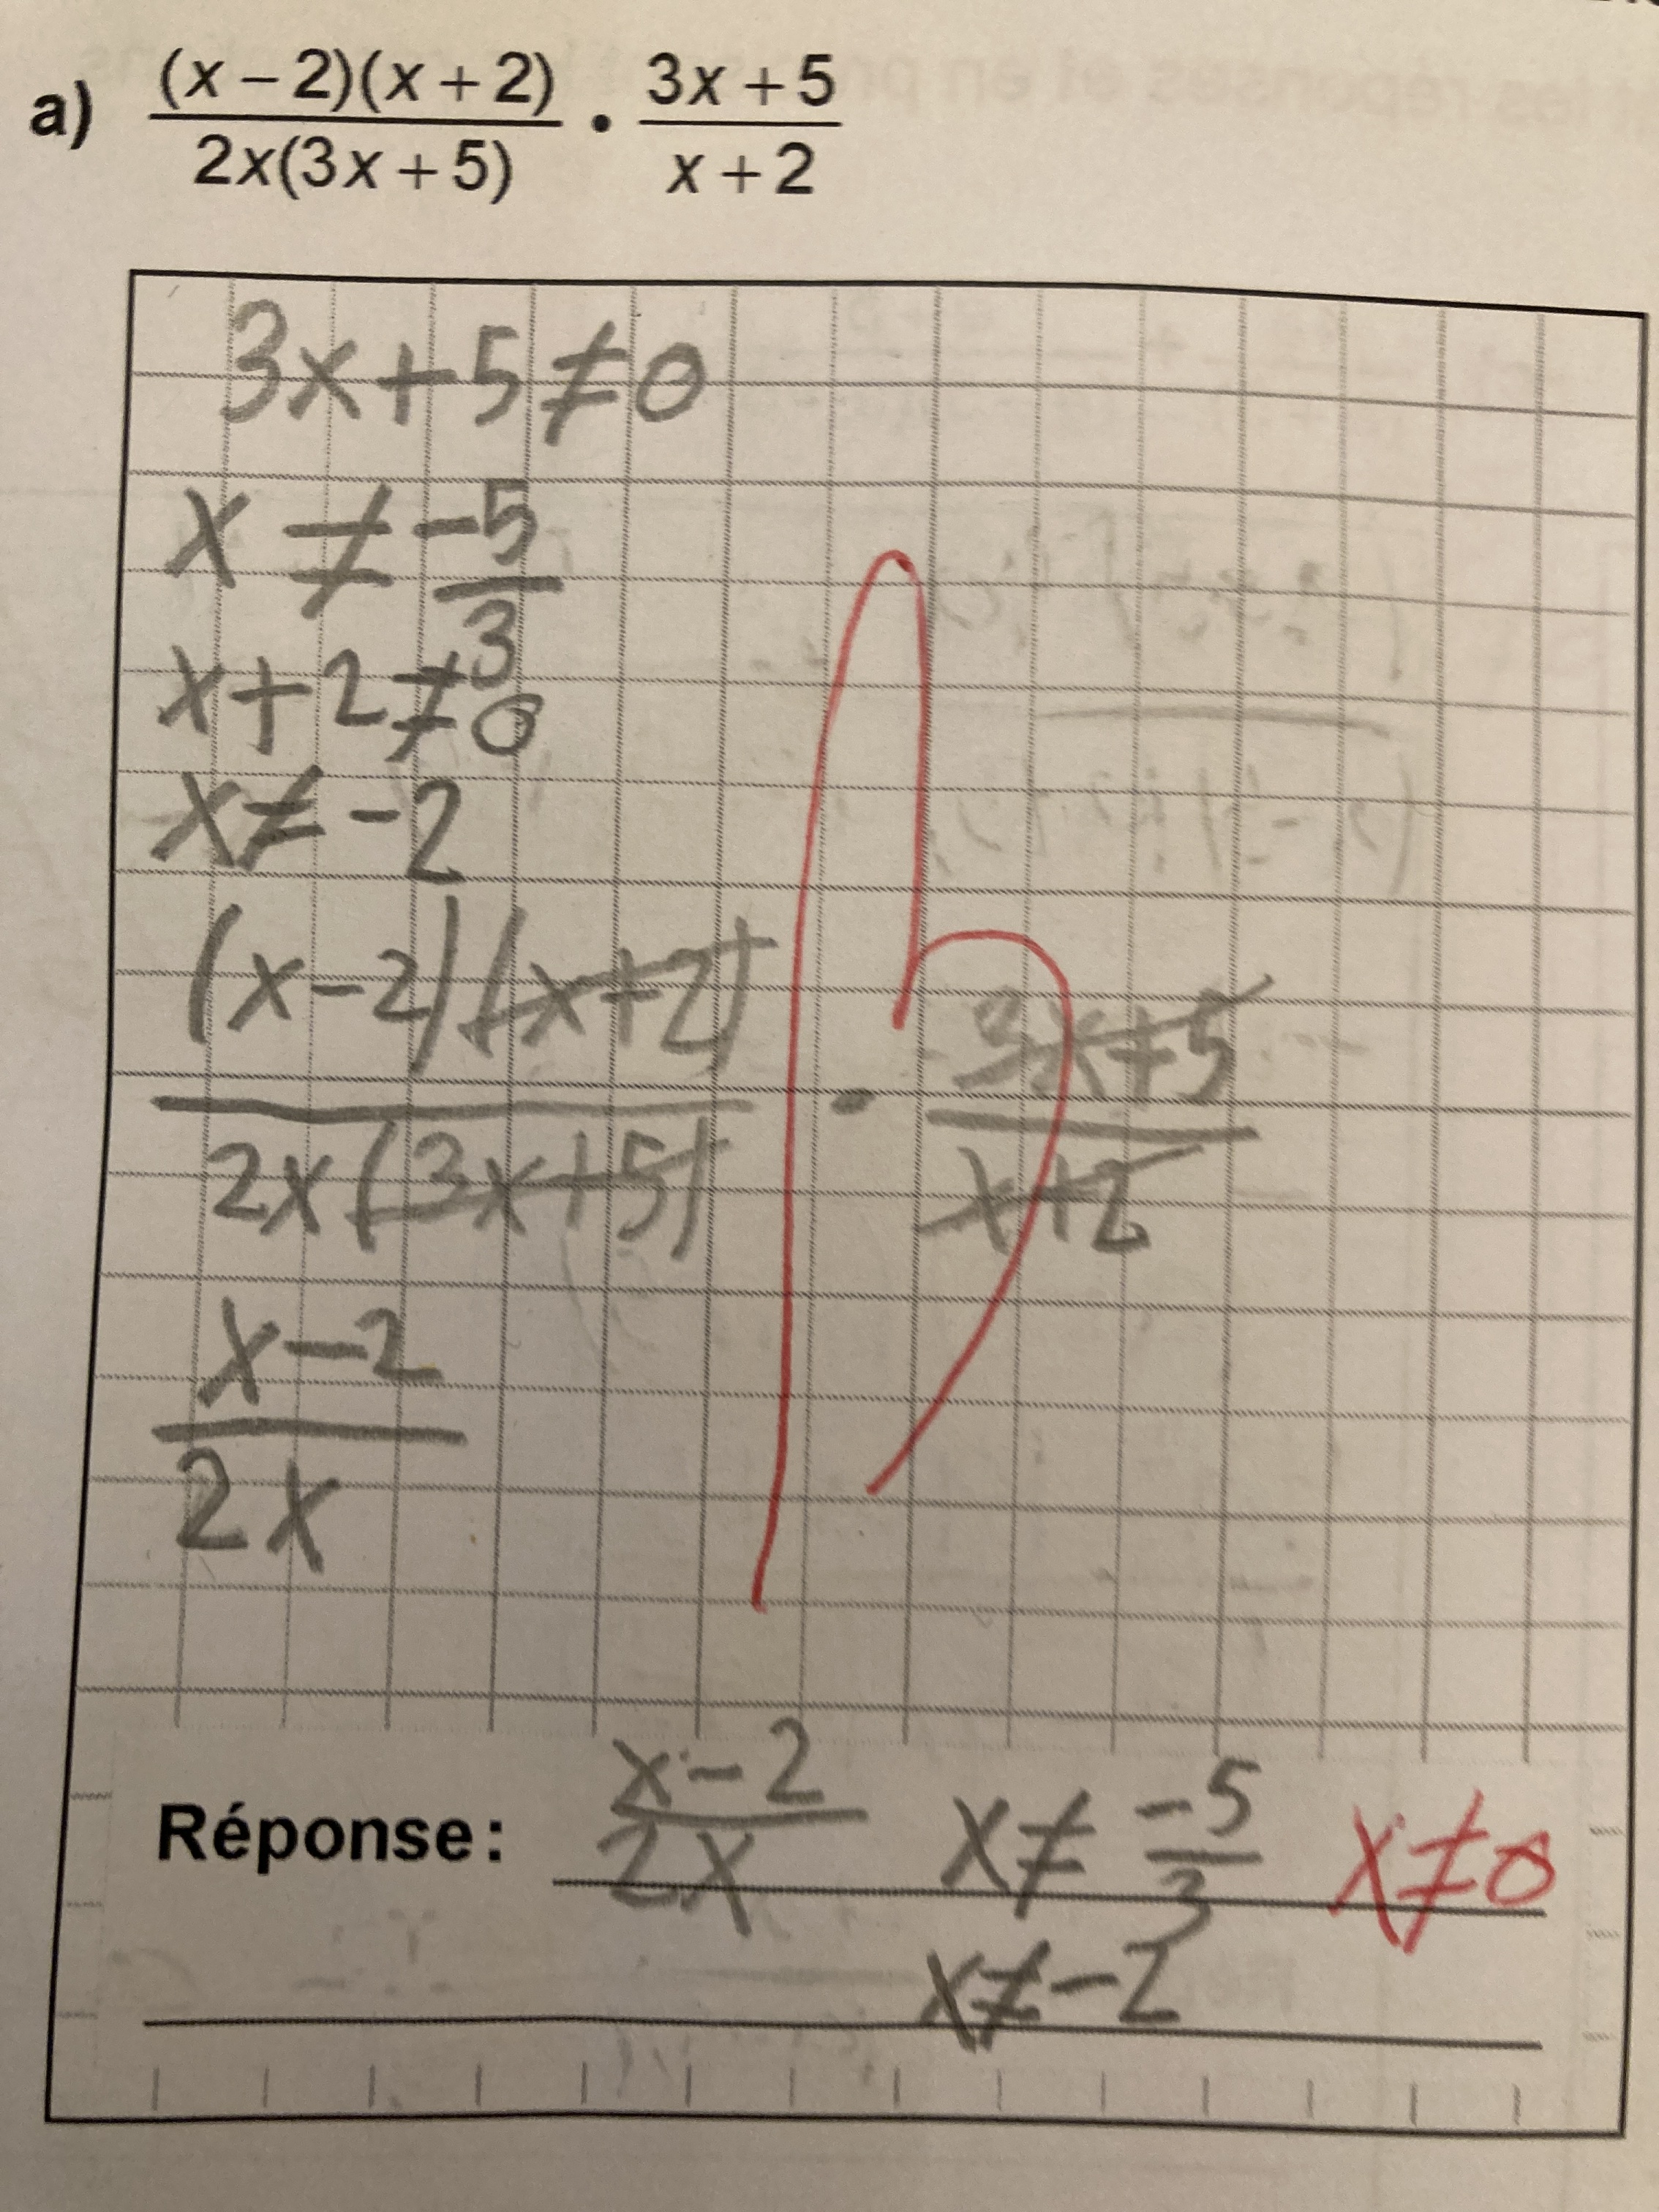 a) (x – 2)(x + 2) / 2x(3x + 5) • 3x + 5 / x + 2
3x+5≠0
x ≠ -5/3
x+2≠0
x≠-2
(x-2)(x+2) / 2x(3x+5) · 3x+5 / x+2
x-2 / 2x
Réponse: x-2 / 2x x≠ -5/3 x≠0
x≠-2